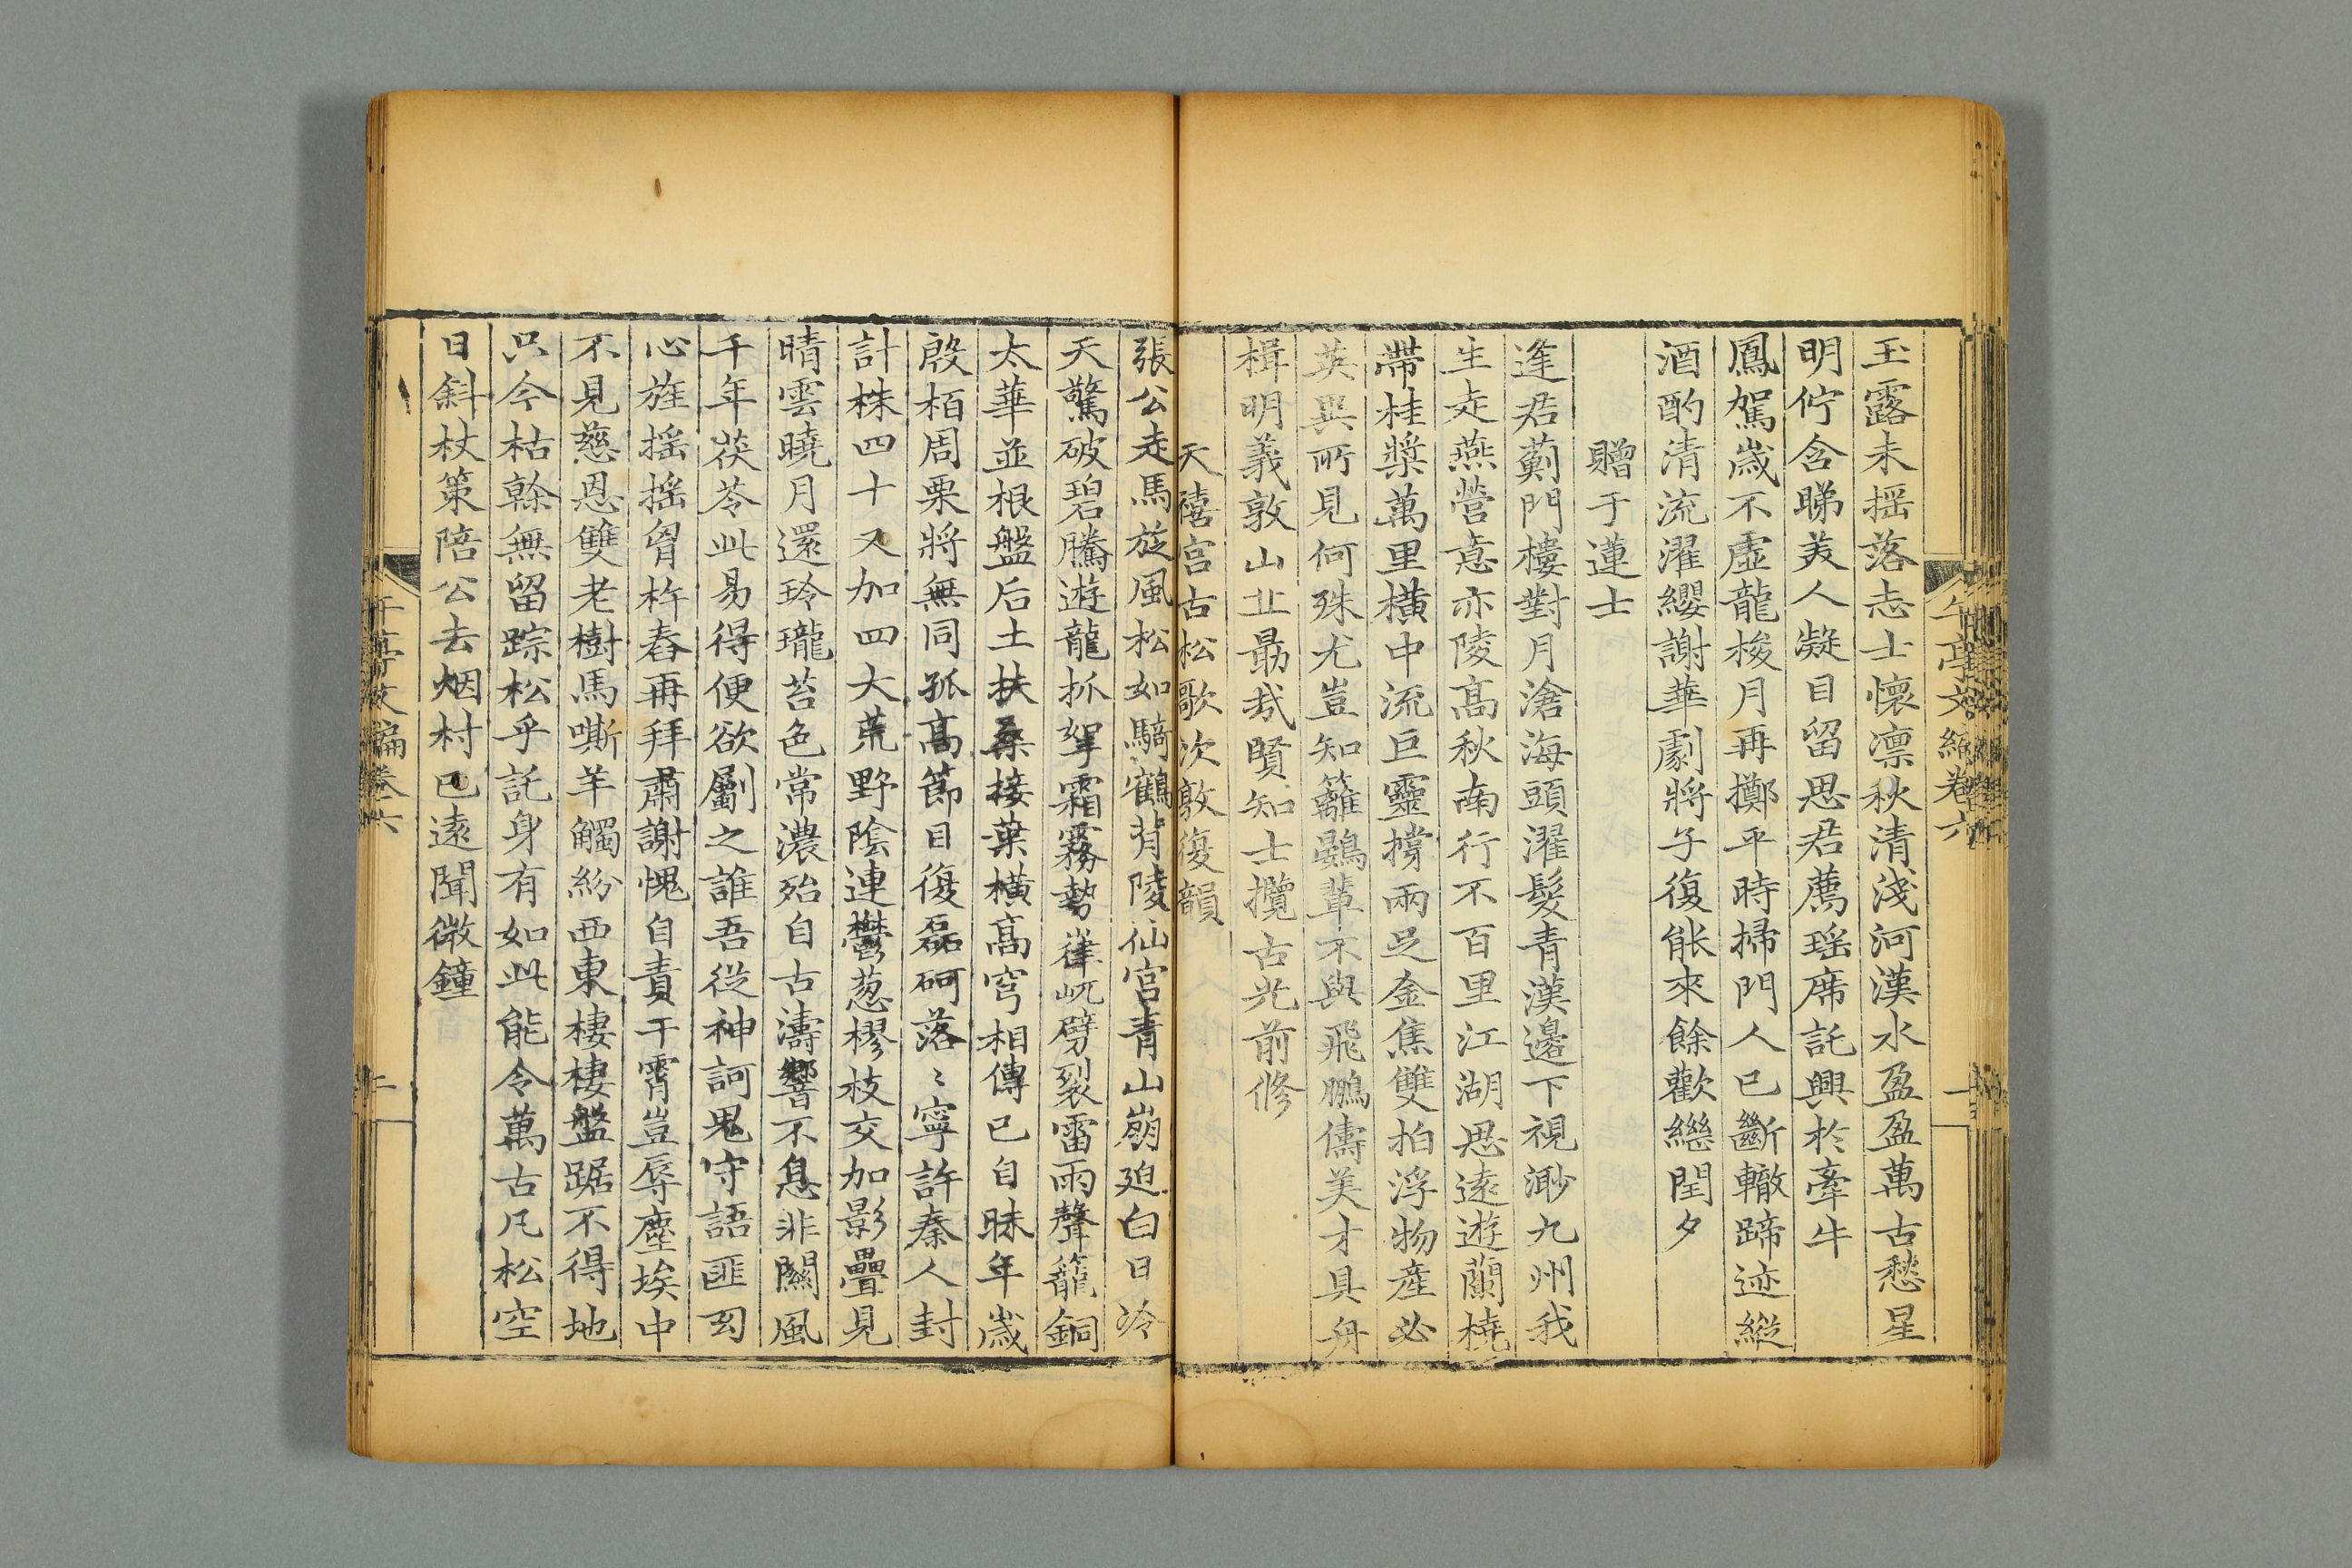 午亭文編卷六
玉露未揺落志士懷凛秋清淺河漢水盈盈萬古愁星
明佇含睇美人凝目留思君薦瑶席託興於牽牛
鳳駕歲不虛龍梭月再擲平時掃門人已斷轍蹄迹縱
酒酌清流濯纓謝華劇將子復能來餘歡繼閏夕
贈于蓮士
逢君薊門樓對月滄海頭濯髮青漢邊下視渺九州我
生走燕營意亦陵高秋南行不百里江湖思遠遊蘭橈
帶桂槳萬里横中流巨靈撐兩足金焦雙拍浮物産必
英異所見何殊尤豈知籬鷃輩不與飛鵬儔美才具舟
楫明義敦山丘勗哉賢知士攬古光前修
天禧宮古松歌次敦復韻
張公走馬旋風松如騎鶴背陵仙宮青山崩迫白日冷
天驚破碧騰遊龍抓拏霜霧勢嵂屼劈裂雷雨聲籠銅
太華並根盤后土扶桑接葉横高穹相傳已自昧年歲
殷栢周栗將無同孤高節目復磊砢落〻寧許秦人封
計株四十又加四大荒野陰連鬱葱樛枝交加影疊見
晴雲曉月還玲瓏苔色常濃殆自古濤響不息非關風
千年茯苓此易得便欲劚之誰吾從神訶鬼守語匪刕
心旌揺揺胷杵舂再拜肅謝愧自責干霄豈辱塵埃中
不見慈恩雙老樹馬嘶羊觸紛西東棲棲盤踞不得地
只今枯榦無留踪松乎託身有如此能令萬古凡松空
日斜杖策陪公去烟村已遠聞微鐘
午亭文編卷六